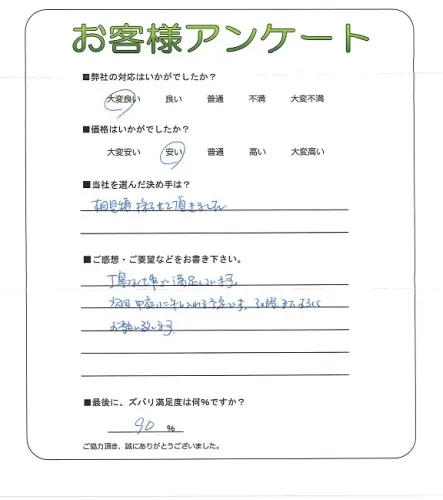 お客様アンケート
■弊社の対応はいかがでしたか？
大変良い 良い 普通 不満 大変不満
■価格はいかがでしたか？
大変安い 安い 普通 高い 大変高い
■当社を選んだ決め手は？
相見積採らせて頂きました
■ご感想・ご要望などをお書き下さい。
丁寧な仕事で満足しています。
次回 中庭に手入れする予定です。その際またよろしく
お願い致します。
■最後に、ズバリ満足度は何％ですか？
90 %
ご協力頂き、誠にありがとうございました。